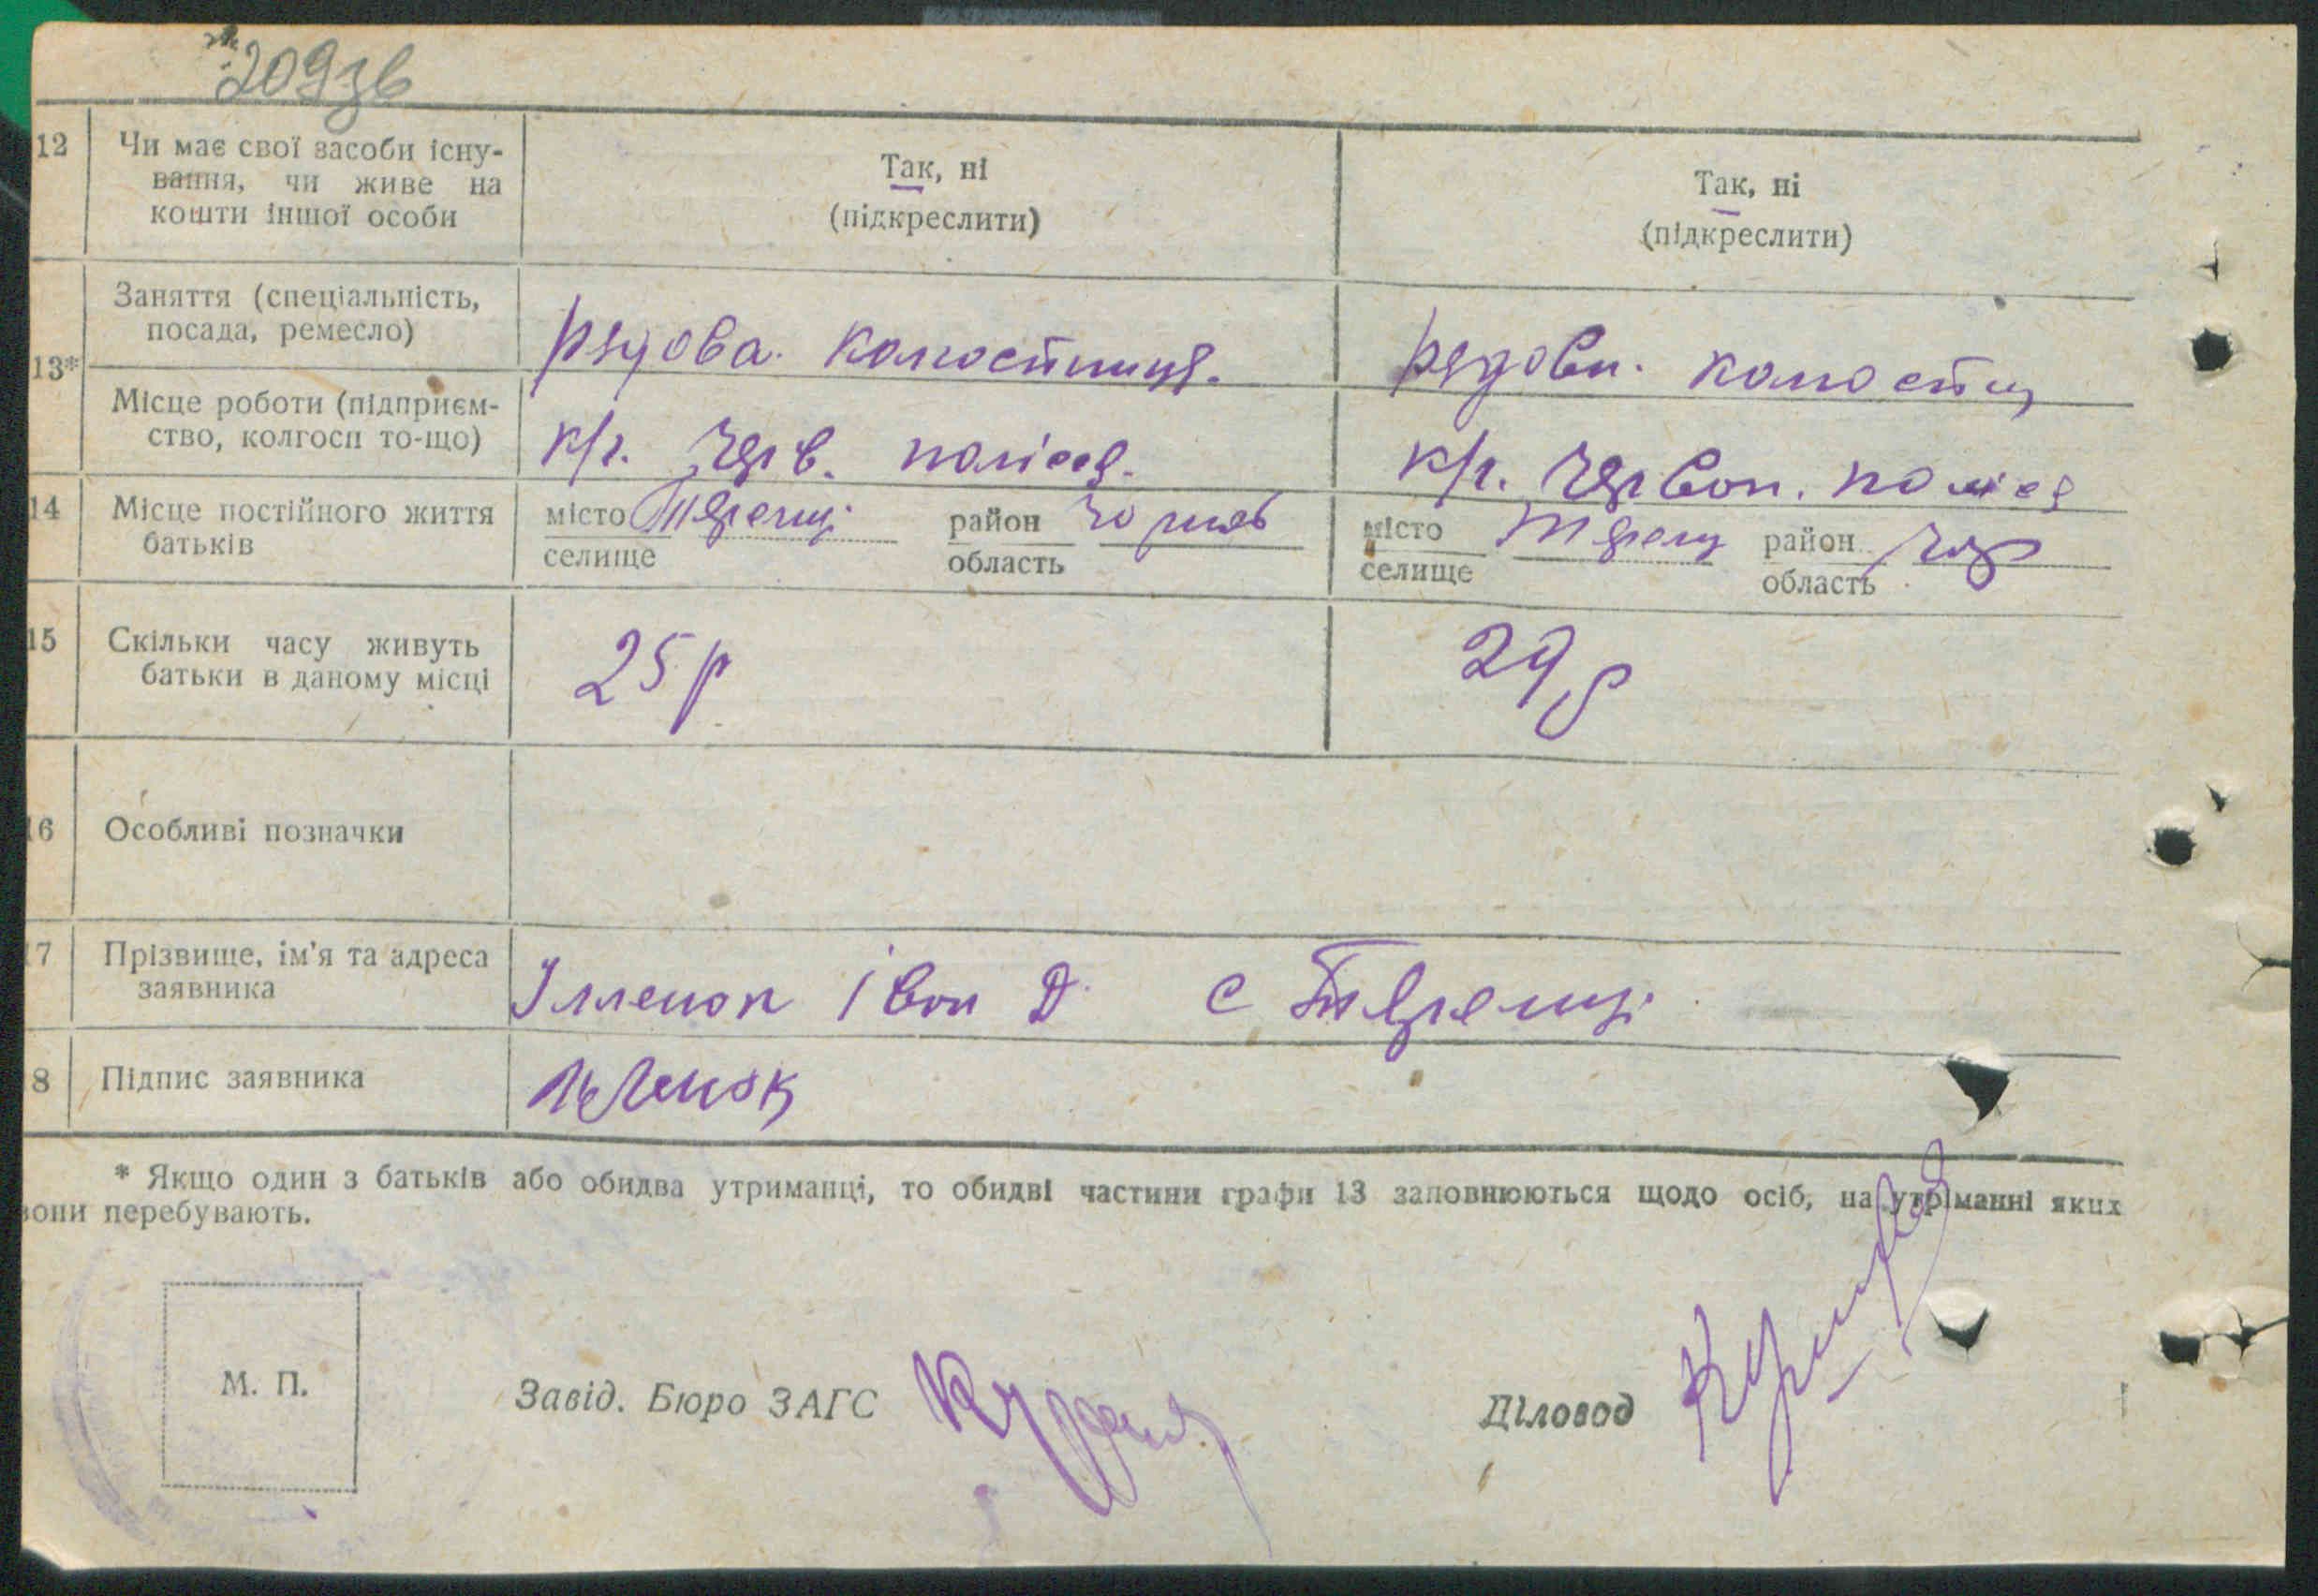 209зв
12 Чи має свої засоби існу-
вання, чи живе на
кошти іншої особи
Так, ні
(підкреслити)
Так, ні
(підкреслити)
13*
Заняття (спеціальність,
посада, ремесло)
рядова.
рядови.
Місце роботи (підприєм-
ство, колгосп то-що)
к/г. Черв. полісся.
к/г. Червон. поліся
14 Місце постійного життя
батьків
місто Теремці район Чорноб
селище область
місто Теремці район Чор
селище область
15 Скільки часу живуть
батьки в даному місці
25 р
29 р
16 Особливі позначки
17 Прізвище, ім'я та адреса
заявника
Ілленок Іван Д. с Теремці.
18 Підпис заявника
Ільенок
* Якщо один з батьків або обидва утриманці, то обидві частини графи 13 заповнюються щодо осіб, на утриманні яких
вони перебувають.
М. П.
Завід. Бюро ЗАГС
Діловод